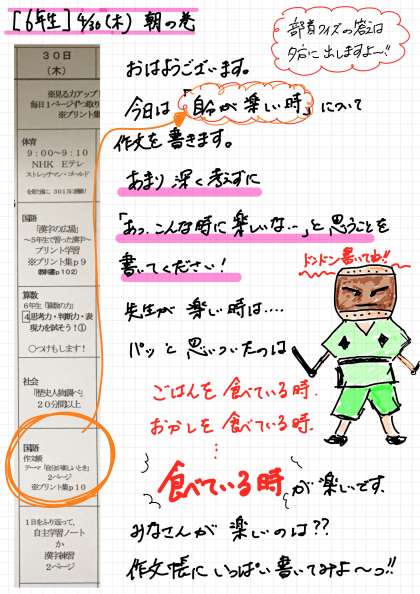 [6年生] 4/30(木) 朝の巻
部首クイズの答えは
夕方に出しますよ〜!!
おはようございます。
今日は「自分が楽しい時」について
作文を書きます。
あまり深く考えずに
「あっ、こんな時に楽しいな…」と思うことを
書いてください!
ドンドン書いてね!!
先生が楽しい時は....
パッと思いついたのは
ごはんを食べている時.
おかしを食べている時.
⋮
食べている時が楽しいです.
みなさんが楽しいのは??
作文帳にいっぱい書いてみよ〜っ!!
30日
(木)
※見る力アップ
毎日1ページずつ取り
※プリント集
体育
9:00〜9:10
NHK Eテレ
ストレッチマン・ゴールド
国語
「漢字の広場」
〜5年生で習った漢字〜
プリント学習
※プリント集p9
(教科書p102)
算数
6年生「算数の力」
4思考力・判断力・表
現力を試そう!①
○つけもします!
社会
「歴史人物調べ」
20分間以上
国語
作文帳
テーマ「自分が楽しいとき」
2ページ
※プリント集p10
1日をふり返って、
自主学習ノート
か
漢字練習
2ページ